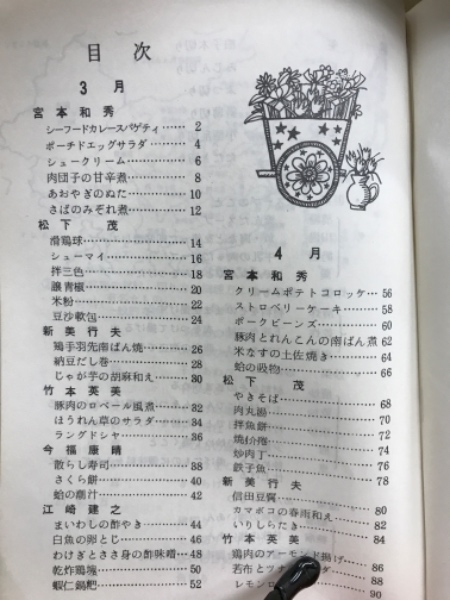 目次
3月
宮本和秀
シーフードカレースパゲティ…… 2
ポーチドエッグサラダ………… 4
シュークリーム………………… 6
肉団子の甘辛煮………………… 8
あおやぎのぬた………………… 10
さばのみぞれ煮………………… 12
松下 茂
滑鶏球…………………………… 14
シューマイ……………………… 16
拌三色…………………………… 18
譲青椒…………………………… 20
米粉……………………………… 22
豆沙軟包………………………… 24
新美行夫
鶏手羽先南ばん焼……………… 26
納豆だし巻……………………… 28
じゃが芋の胡麻和え…………… 30
竹本英美
豚肉のロベール風煮…………… 32
ほうれん草のサラダ…………… 34
ラングドシャ…………………… 36
今福康晴
散らし寿司……………………… 38
さくら餅………………………… 40
蛤の潮汁………………………… 42
江崎建之
まいわしの酢やき……………… 44
白魚の卵とじ…………………… 46
わけぎとささ身の酢味噌……… 48
乾炸鶏塊………………………… 50
蝦仁鍋粑………………………… 52
4月
宮本和秀
クリームポテトコロッケ… 56
ストロベリーケーキ……… 58
ポークビーンズ…………… 60
豚肉とれんこんの南ばん煮 62
米なすの土佐焼き………… 64
蛤の吸物…………………… 66
松下 茂
やきそば…………………… 68
肉丸湯……………………… 70
拌魚餅……………………… 72
74
炒肉丁……………………… 76
鉄子魚……………………… 78
新美行夫
信田豆腐…………………… 80
カマボコの春雨和え……… 82
いりしらたき……………… 84
竹本英美
鶏肉のアーモンド揚げ…… 86
若布とツナ 88
レモン 90